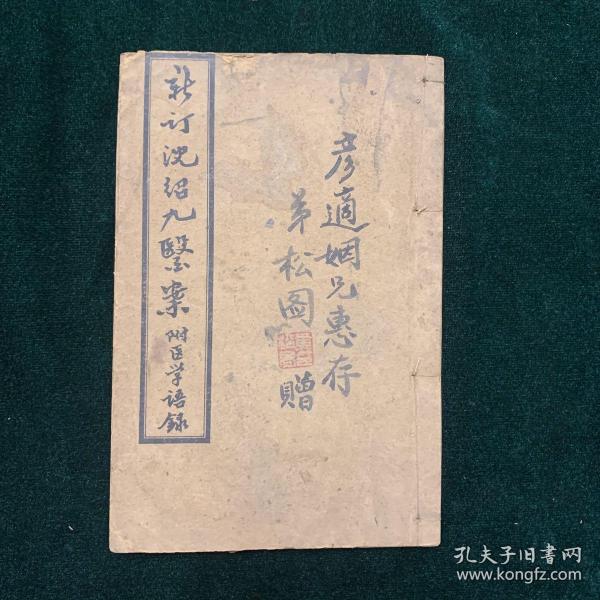 彦適姻兄惠存
弟松图
贈
新订沈绍九醫案附医学语録
孔夫子旧书网
www.kongfz.com